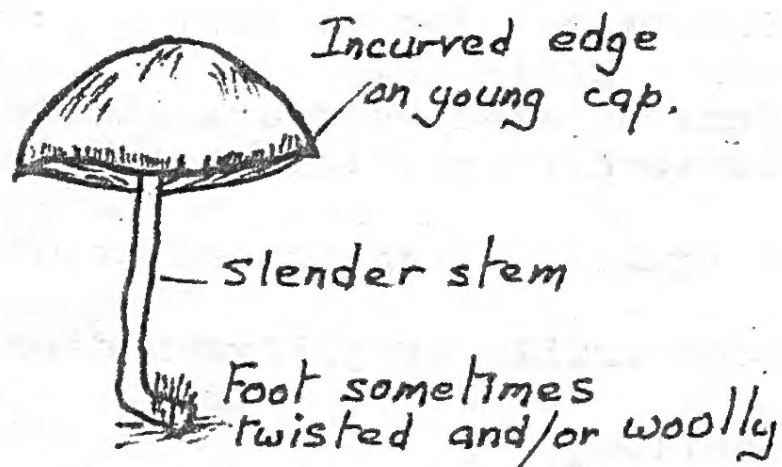 Incurved edge
on young cap.
slender stem
Foot sometimes
twisted and/or woolly